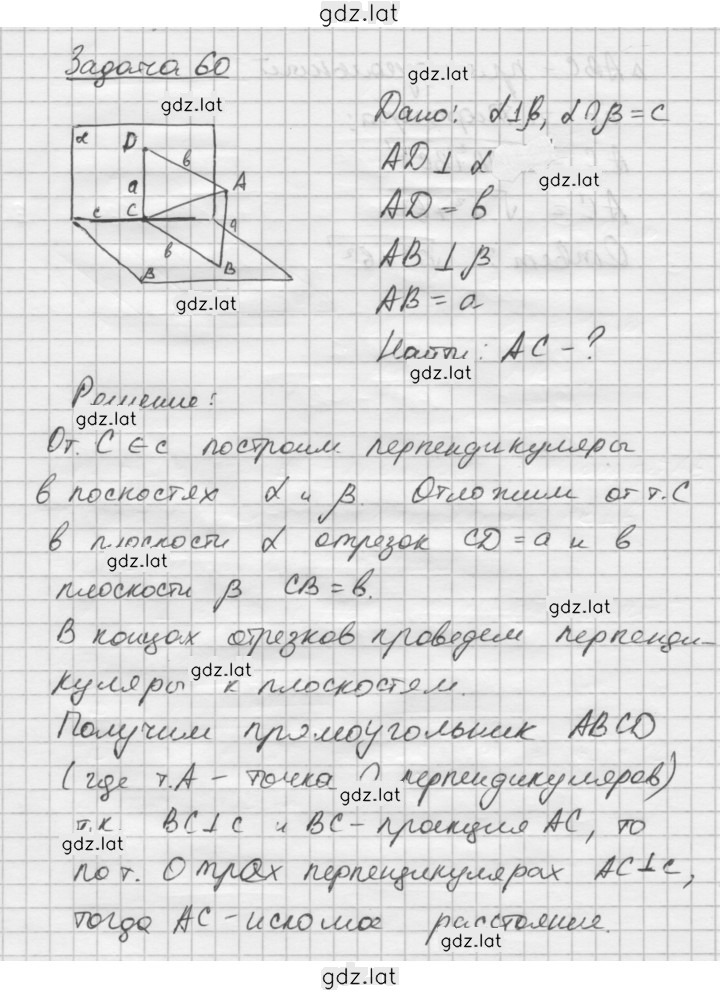 gdz.lat
Задача 60
gdz.lat
gdz.lat
α D b
a A
c C a
b B
β
gdz.lat
Дано: α⊥β, α∩β=c
AD⊥α
gdz.lat
AD = b
AB⊥β
AB = a
Найти: AC - ?
gdz.lat
Решение:
gdz.lat
От. C∈c построим перпендикуляры
в поскостях α и β. Отложим от т.C
в плоскости α отрезок CD=a и в
gdz.lat
плоскости β CB=b.
gdz.lat
В концах отрезков проведем перпенди-
куляры к плоскостям.
gdz.lat
Получим прямоугольник ABCD
(где т.A - точка ∩ перпендикуляров)
gdz.lat
т.к. BC⊥c и BC - проекция AC, то
gdz.lat
по т. О трех перпендикулярах AC⊥c,
тогда AC - искомое расстояние.
gdz.lat
gdz.lat